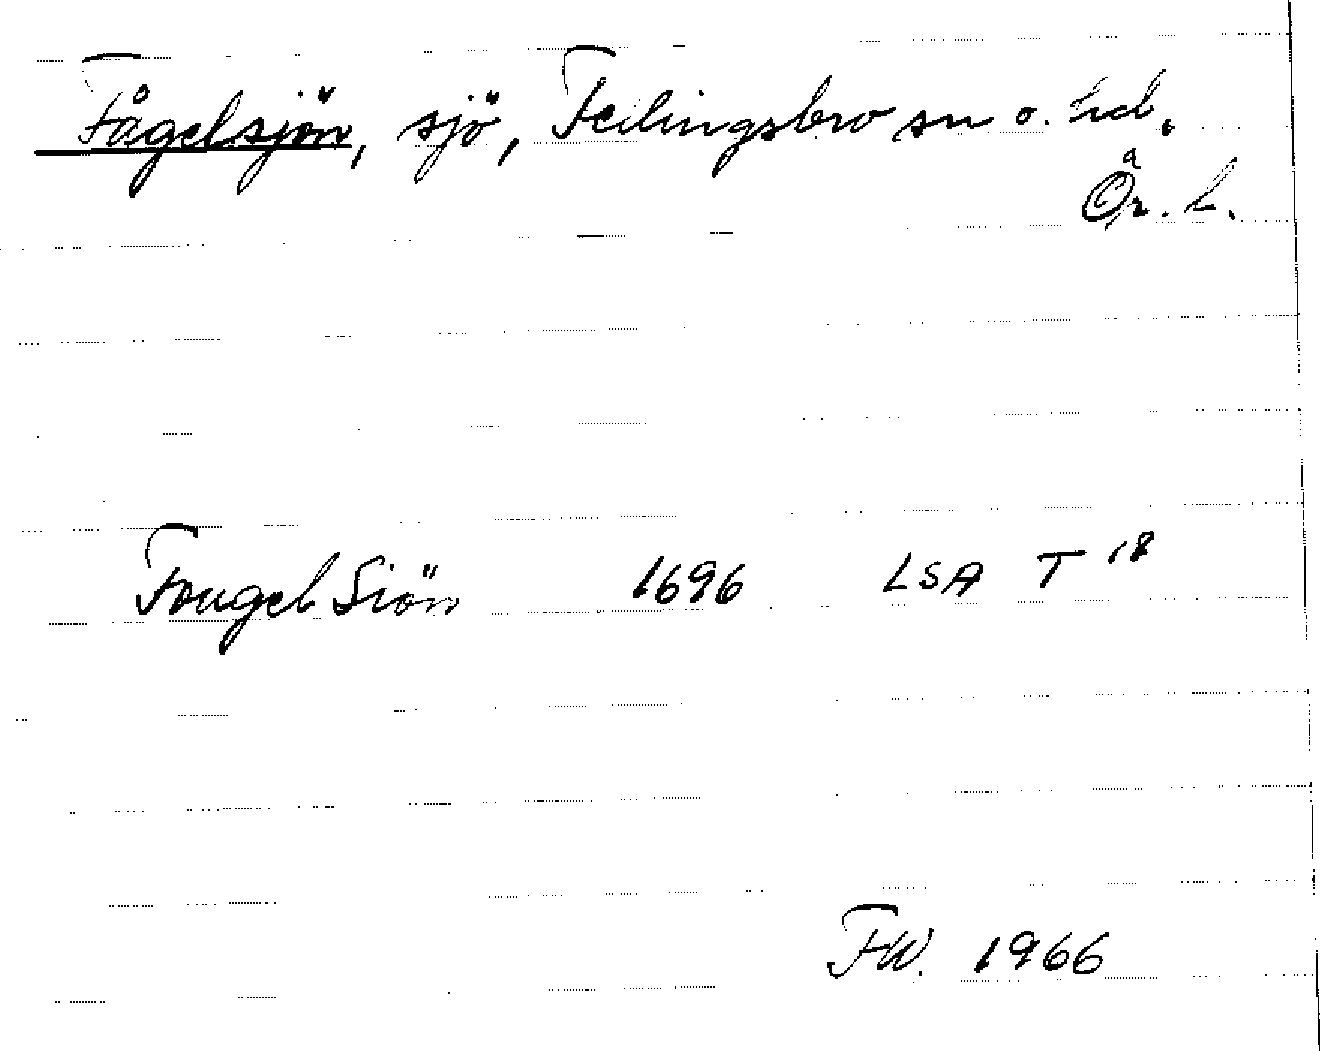 Fågelsjön, sjö, Fellingsbro sn o. hd.
Ör. l.
Fougel Siön 1696 LSA T 18
FW. 1966